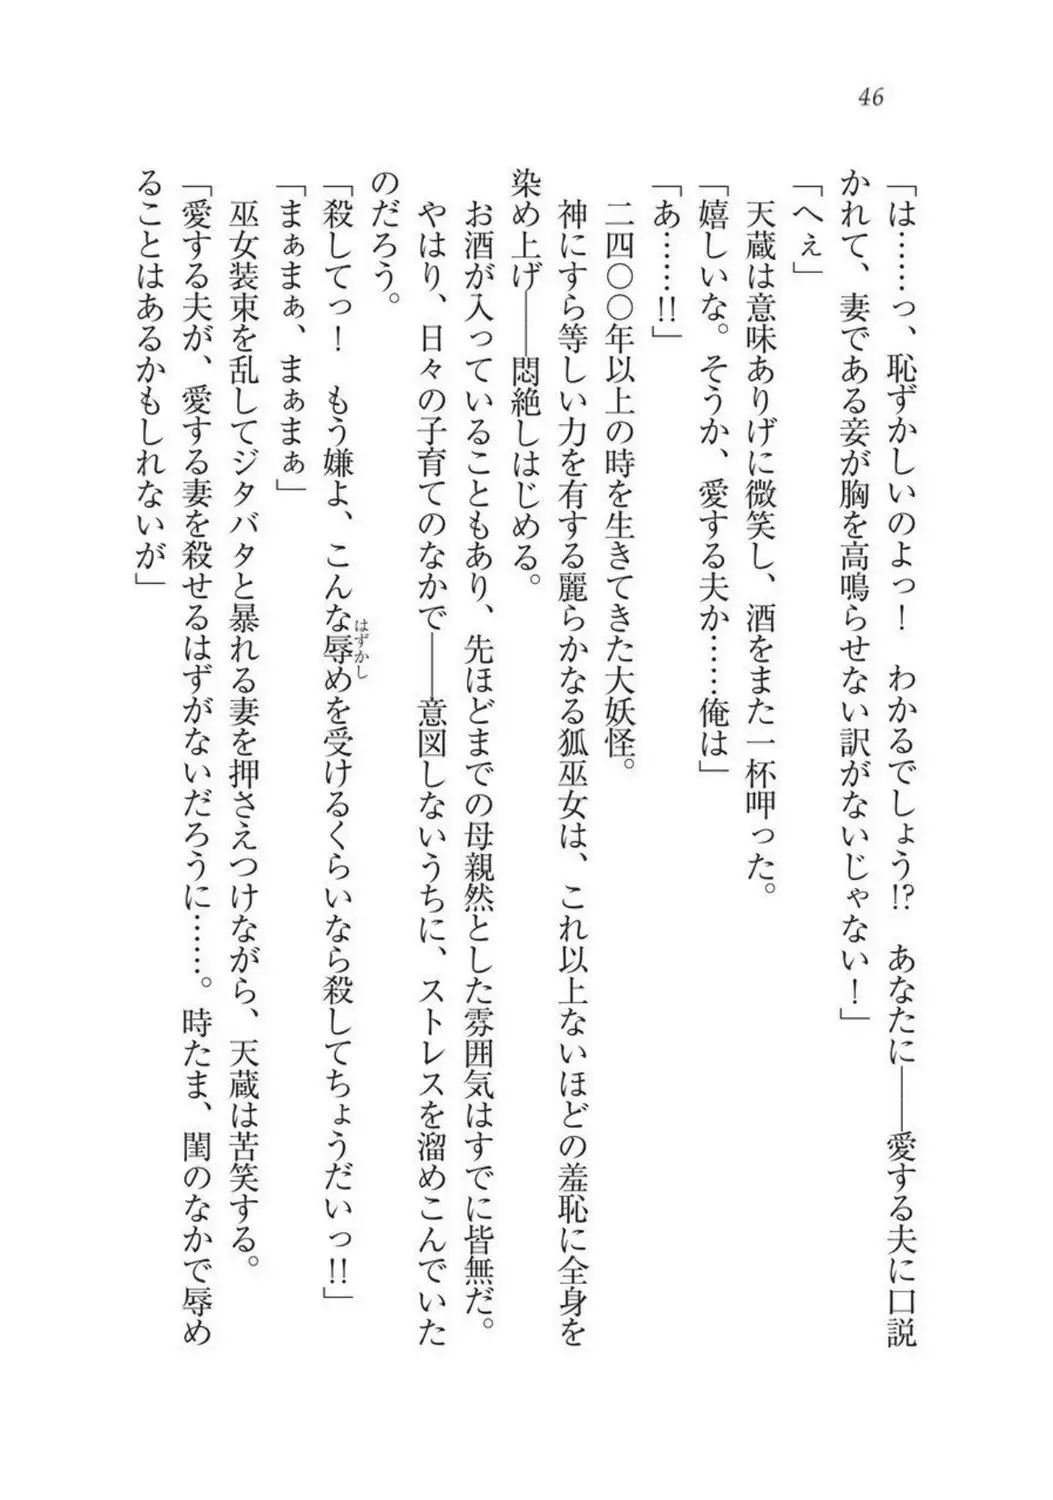 46
「は……っ、恥ずかしいのよっ！　わかるでしょう!?　あなたに――愛する夫に口説
かれて、妻である妾が胸を高鳴らせない訳がないじゃない！」
「へぇ」
　天蔵は意味ありげに微笑し、酒をまた一杯呷った。
「嬉しいな。そうか、愛する夫か……俺は」
「あ……!!」
　二四〇〇年以上の時を生きてきた大妖怪。
　神にすら等しい力を有する麗らかなる狐巫女は、これ以上ないほどの羞恥に全身を
染め上げ――悶絶しはじめる。
　お酒が入っていることもあり、先ほどまでの母親然とした雰囲気はすでに皆無だ。
　やはり、日々の子育てのなかで――意図しないうちに、ストレスを溜めこんでいた
のだろう。
「殺してっ！　もう嫌よ、こんな辱めを受けるくらいなら殺してちょうだいっ!!」
はずかし
「まぁまぁ、まぁまぁ」
　巫女装束を乱してジタバタと暴れる妻を押さえつけながら、天蔵は苦笑する。
「愛する夫が、愛する妻を殺せるはずがないだろうに……。時たま、閨のなかで辱め
ることはあるかもしれないが」